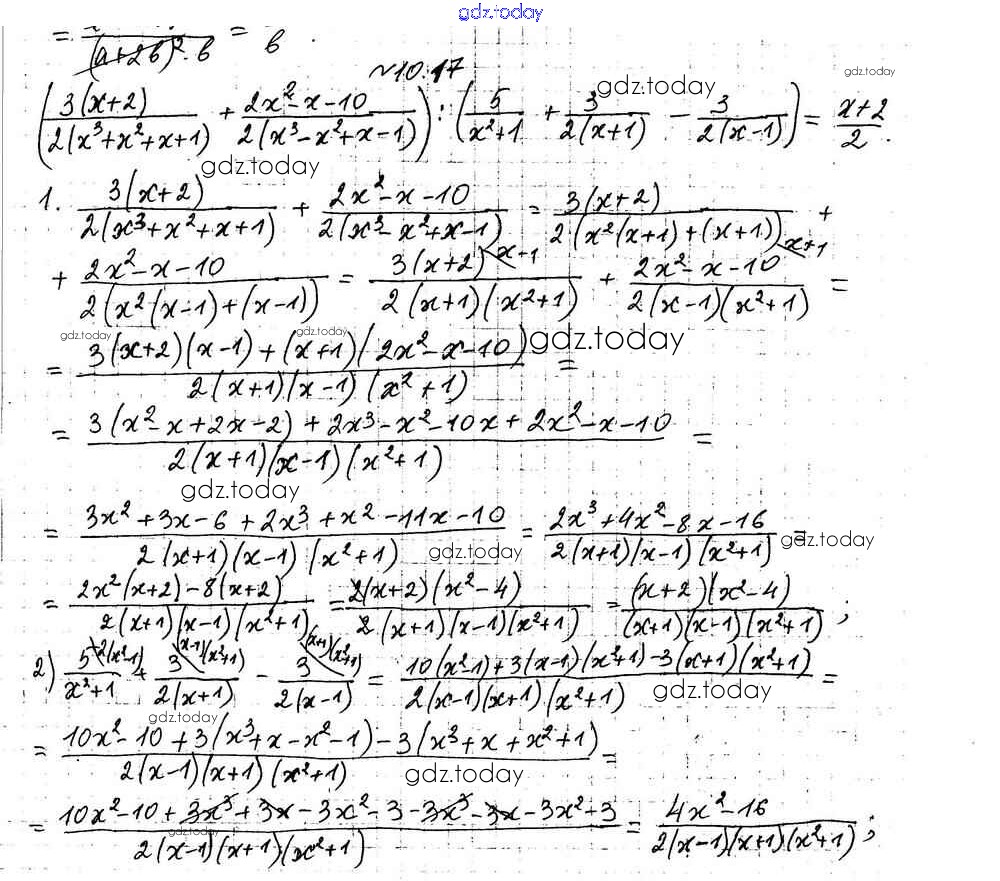 gdz.today
= / (a+2b)² · b = b .
№10.17 gdz.today
(3(x+2) / 2(x³+x²+x+1) + 2x²-x-10 / 2(x³-x²+x-1)) : (5 / x²+1 + 3 / 2(x+1) - 3 / 2(x-1)) = x+2 / 2 .
gdz.today gdz.today
1. 3(x+2) / 2(x³+x²+x+1) + 2x²-x-10 / 2(x³-x²+x-1) = 3(x+2) / 2(x²(x+1)+(x+1)) +
+ 2x²-x-10 / 2(x²(x-1)+(x-1)) = 3(x+2) \x-1 / 2(x+1)(x²+1) + 2x²-x-10 \x+1 / 2(x-1)(x²+1) =
gdz.today gdz.today gdz.today
= 3(x+2)(x-1)+(x+1)(2x²-x-10) / 2(x+1)(x-1)(x²+1) =
= 3(x²-x+2x-2)+2x³-x²-10x+2x²-x-10 / 2(x+1)(x-1)(x²+1) =
gdz.today
= 3x²+3x-6+2x³+x²-11x-10 / 2(x+1)(x-1)(x²+1) = 2x³+4x²-8x-16 / 2(x+1)(x-1)(x²+1) =
gdz.today gdz.today
= 2x²(x+2)-8(x+2) / 2(x+1)(x-1)(x²+1) = 2(x+2)(x²-4) / 2(x+1)(x-1)(x²+1) = (x+2)(x²-4) / (x+1)(x-1)(x²+1) ;
2) 5 \2(x²-1) / x²+1 + 3 \(x-1)(x²+1) / 2(x+1) - 3 \(x+1)(x²+1) / 2(x-1) = 10(x²-1)+3(x-1)(x²+1)-3(x+1)(x²+1) / 2(x-1)(x+1)(x²+1) =
gdz.today gdz.today
= 10x²-10+3(x³+x-x²-1)-3(x³+x+x²+1) / 2(x-1)(x+1)(x²+1) =
gdz.today
= 10x²-10+3x³+3x-3x²-3-3x³-3x-3x²+3 / 2(x-1)(x+1)(x²+1) = 4x²-16 / 2(x-1)(x+1)(x²+1) ;
gdz.today